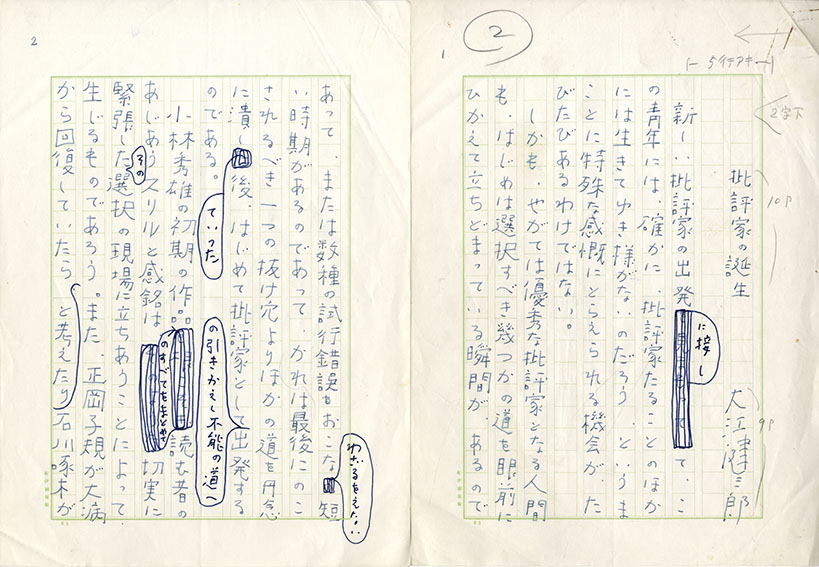 2
1
5行アキ
2字下
10P
批評家の誕生
9P
大江健三郎
新しい批評家の出発に接して、こ
の青年には、確かに、批評家たることのほか
には生きてゆき様がないのだろう、というま
ことに特殊な感慨にとらえられる機会が、た
びたびあるわけではない。
しかも、やがては優秀な批評家となる人間
も、はじめは選択すべき幾つかの道を眼前に
ひかえて立ちどまっている瞬間が、あるので
2
あって、または数種の試行錯誤をおこなわざるをえない短
い時期があるのであって、かれは最後にのこ
されるべき一つの抜け穴よりほかの道を丹念
に潰していった後、はじめて批評家としての引きかえし不能の道へ出発する
のである。
小林秀雄の初期の作品のすべてをまとめて読む者の
あじあうスリルと感銘は切実に
緊張したその選択の現場に立ちあうことによって、
生じるものであろう。また、正岡子規が大病
から回復していたらと考えたり石川啄木が